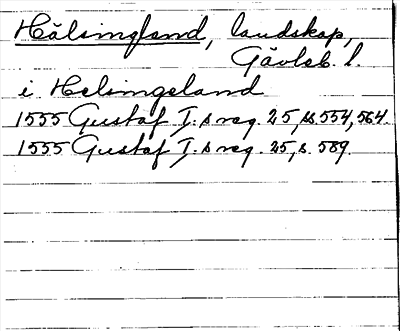 Hälsingland, landskap,
Gävleb. l.
i Helsingeland
1555 Gustaf I.s reg. 25, ss 554, 564.
1555 Gustaf I.s reg. 25, s. 589.